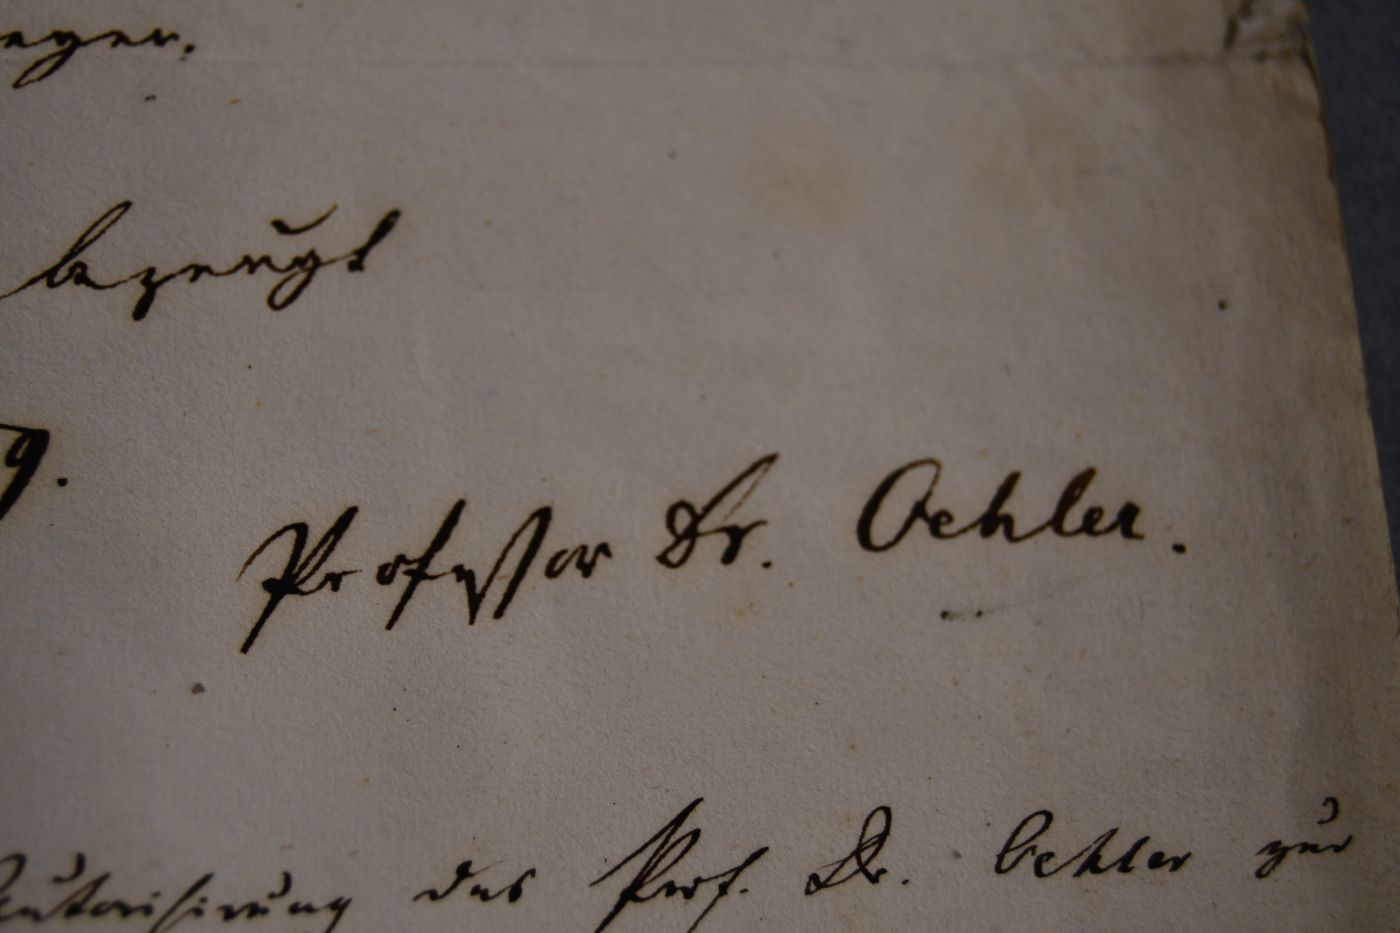 bezeugt
9.
Professor Dr. Oehler.
Autorisirung des Prof. Dr. Oehler zur